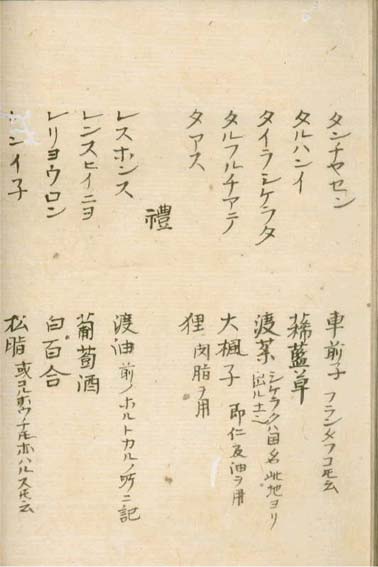 タンチヤセン 車前子 フランタフコモ云
タルハンイ 稀藍草
タイラシケラタ 渡茶 シケラタハ国名此地ヨリ
出ル
タルフルチアテ 大楓子 即仁及油ヲ用
タアス 狸 肉脂ヲ用
禮
レスホンス 渡油 前ノホルトカルノ所ニ記
レンスヒイニヨ 葡萄酒
レリヨウロン 白百合
ンイ子 松脂 或